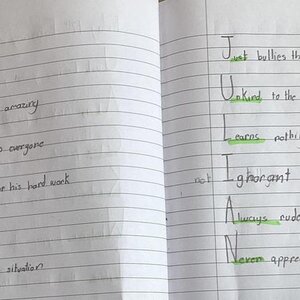 amazing
everyone
his hard work
situation
Just bullies th
Unkind to the
Learns nothi
not Ignorant
Always rude
Never appre